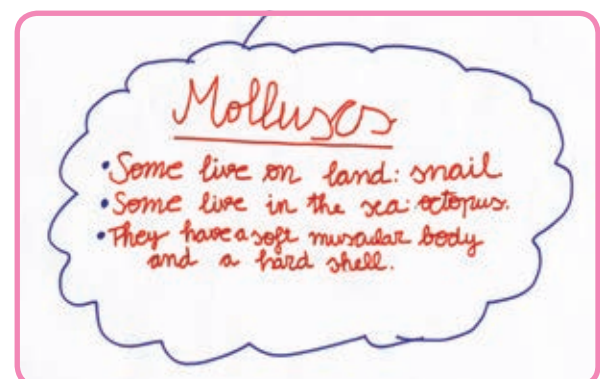 Molluscs
• Some live on land: snail
• Some live in the sea: octopus.
• They have a soft muscular body
and a hard shell.